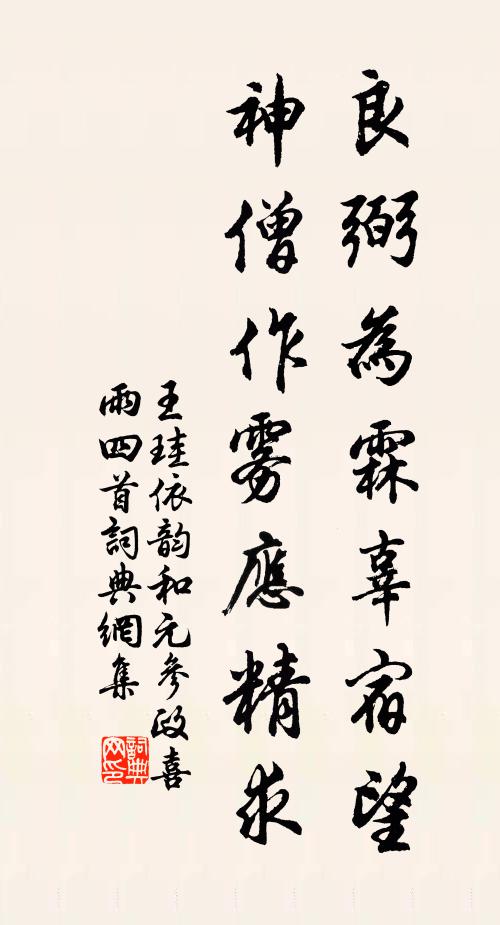 良弼為霖辜宿望
神僧作霧應精求
王珪依韵和元參政喜
雨四首詞典網集
詞典
网印